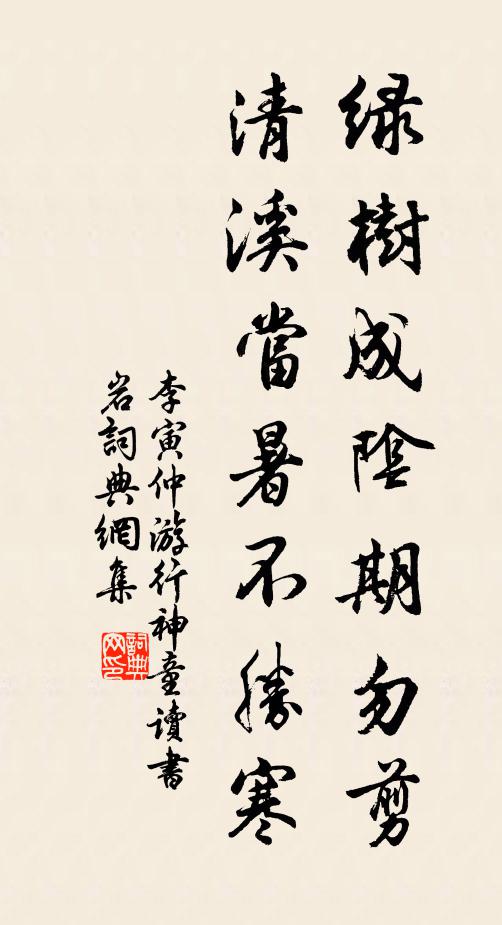 绿樹成陰期勿剪
清溪當暑不勝寒
李寅仲游行神童讀書
岩詞典網集
詞典
网印